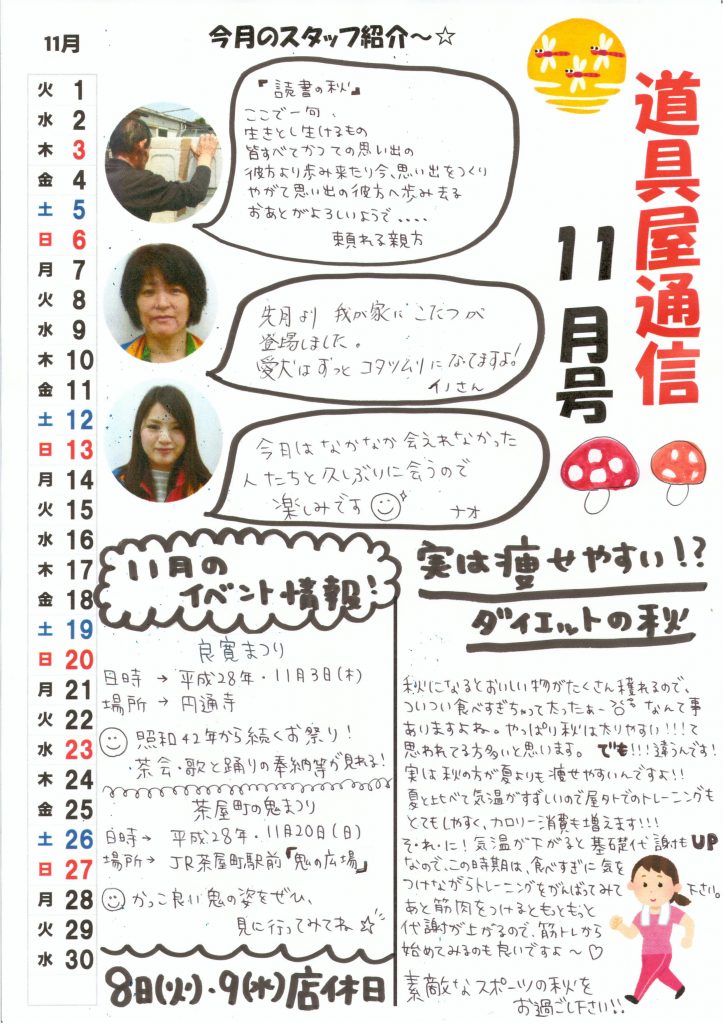 道具屋通信
11月号
今月のスタッフ紹介～☆
『読書の秋』
ここで一句、
生きとし生けるもの
皆すべてかつての思い出の
彼方より歩み来たり今、思い出をつくり
やがて思い出の彼方へ歩み去る
おあとがよろしいようで....
頼れる親方
先月より 我が家に こたつが
登場しました。
愛犬はずっと コタツムリになってますよ!
イノさん
今月はなかなか会えれなかった
人たちと久しぶりに会うので
楽しみです
ナオ
11月
火 1
水 2
木 3
金 4
土 5
日 6
月 7
火 8
水 9
木 10
金 11
土 12
日 13
月 14
火 15
水 16
木 17
金 18
土 19
日 20
月 21
火 22
水 23
木 24
金 25
土 26
日 27
月 28
火 29
水 30
11月の
イベント情報!
良寛まつり
日時 → 平成28年・11月3日(木)
場所 → 円通寺
照和42年から続くお祭り!
茶会・歌と踊りの奉納等が見れる!
茶屋町の鬼まつり
日時→ 平成28年・11月20日(日)
場所→ JR茶屋町駅前『鬼の広場』
かっこ良い鬼の姿をぜひ、
見に行ってみてね☆
8日(火)・9(水)店休日
実は痩せやすい!?
ダイエットの秋
秋になるとおいしい物がたくさん穫れるので、
ついつい食べすぎちゃって太ったぁー なんて事
ありますよね。やっぱり秋は太りやすい!!!て
思われてる方多いと思います。でも!!!違うんです!
実は秋の方が夏よりも痩せやすいんですよ!!
夏と比べて気温がすずしいので屋外でのトレーニングも
とてもしやすく、カロリー消費も増えます!!!
それに!気温が下がると基礎代謝もUP
なので、この時期は、食べすぎに気を
つけながらトレーニングをがんばってみて下さい。
あと筋肉をつけるともっともっと
代謝が上がるので、筋トレから
始めてみるのも良いですよ～♡
素敵なスポーツの秋を
お過ごし下さい!!